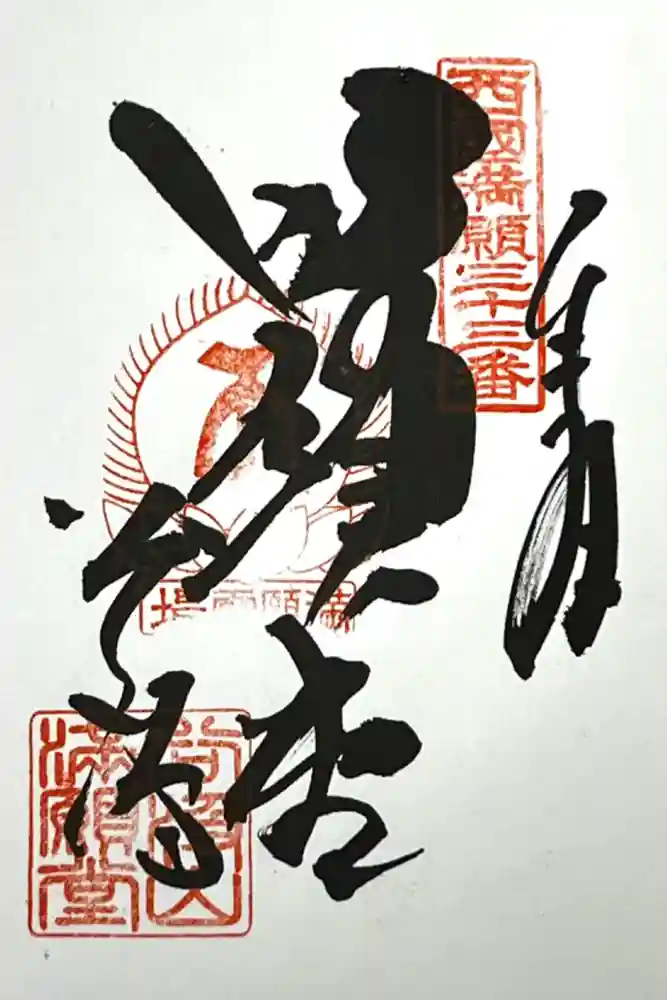 奉拝
西國満願三十三番
満願堂
満願霊場
谷汲山
満願堂